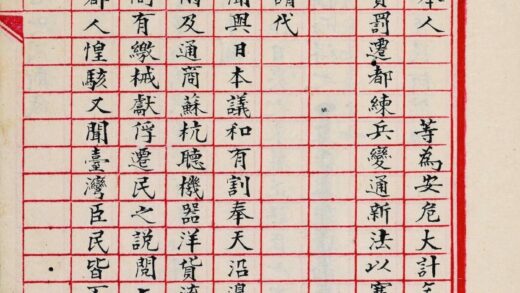 人等為安危大計
罰遷都練兵變通新法以塞
請代
聞與日本議和有割奉天沿邊
及通商蘇杭聽機器洋貨流
有繳械獻俘遷民之說閱
都人惶駭又聞臺灣臣民皆不